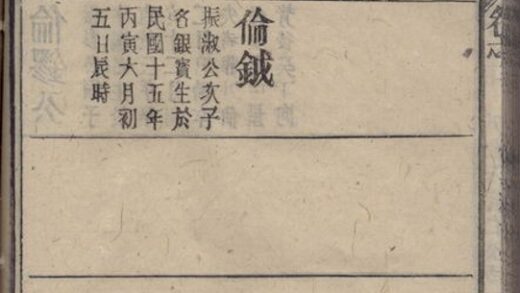 倫鉞
振淑公次子
名銀寳生於
民國十五年
丙寅六月初
五日辰時